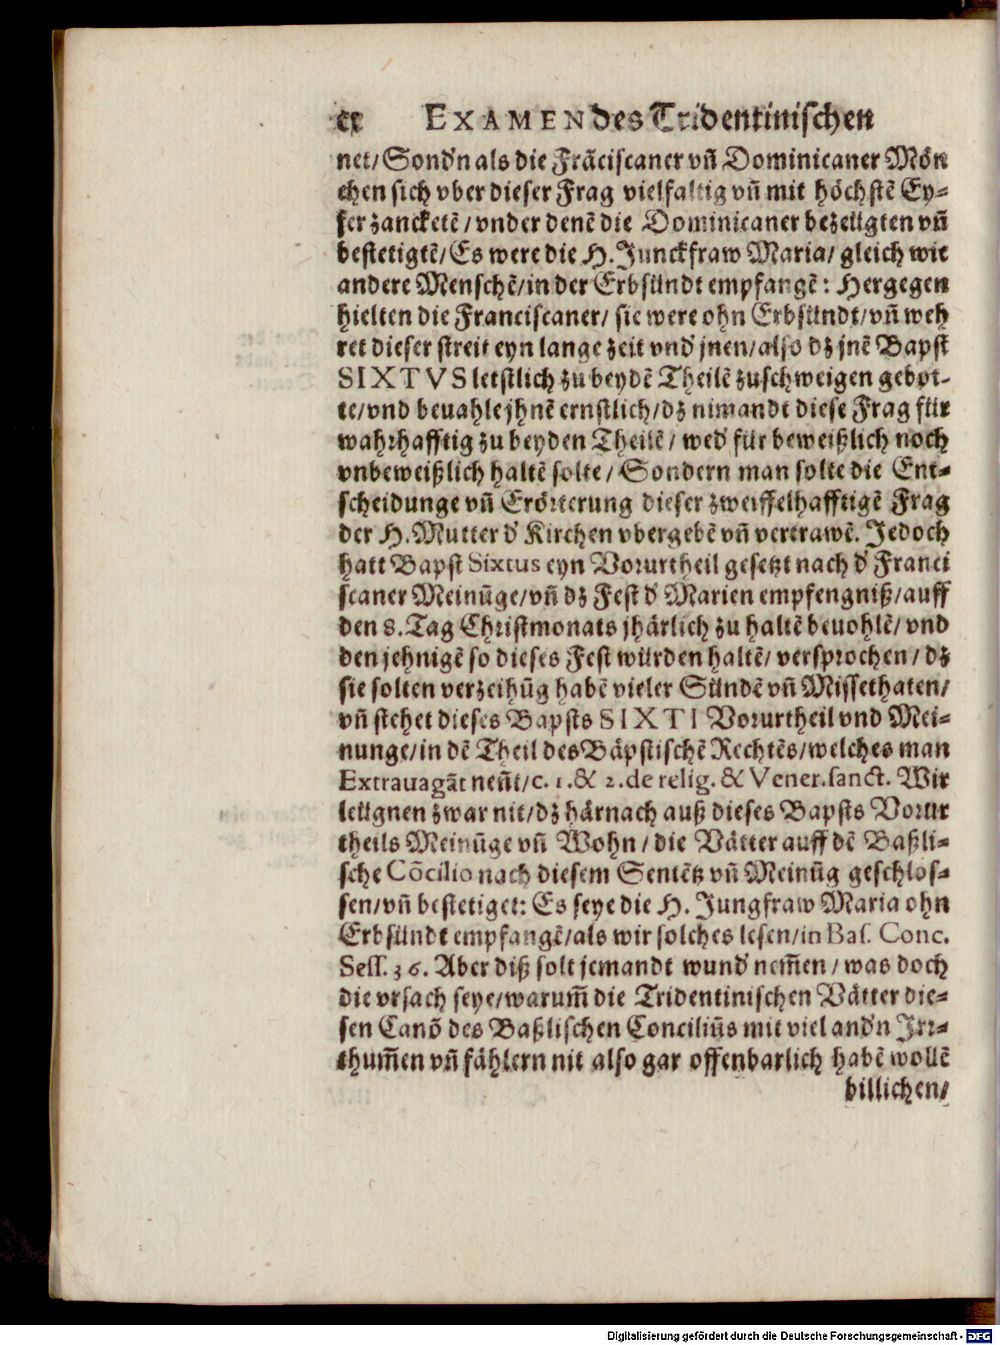 cx EXAMEN des Tridentinischen
net/ Sond'n als die Frãciscaner vñ Dominicaner Mön
chen sich vber dieser Frag vielfaltig vñ mit höchstẽ Ey-
fer zancketẽ / vnder denẽ die Dominicaner bezeügten vñ
bestetigtẽ/ Es were die H. Junckfraw Maria/ gleich wie
andere Menschẽ/ in der Erbsündt empfangẽ: Hergegen
hielten die Franciscaner/ sie were ohn Erbsündt/ vñ weh
ret dieser streit eyn lange zeit vnd' jnen/ also dz jnẽ Bapst
SIXTVS letstlich zu beydẽ Theilẽ zuschweigen gebot-
te/ vnd beuahle jhnẽ ernstlich/ dz nimandt diese Frag für
wahrhafftig zu beyden Theilẽ / wed' für beweißlich noch
vnbeweißlich haltẽ solte/ Sondern man solte die Ent-
scheidunge vñ Erörterung dieser zweiffelhafftigẽ Frag
der H. Mutter d' Kirchen vbergebẽ vñ vertrawẽ. Jedoch
hatt Bapst Sixtus eyn Vorurtheil gesetzt nach d' Franci
scaner Meinũge/ vñ dz Fest d' Marien empfengniß/ auff
den 8. Tag Christmonats jhärlich zu haltẽ beuohlẽ/ vnd
den jehnigẽ so dieses Fest würden haltẽ/ versprochen / dz
sie solten verzeihũg habẽ vieler Sündẽ vñ Missethaten/
vñ stehet dieses Bapsts SIXTI Vorurtheil vnd Mei-
nunge/ in dẽ Theil des Bäpstischẽ Rechtẽs/ welches man
Extravagãt neñt/ c. 1. & 2. de relig. & Vener. sanct. Wir
leügnen zwar nit/ dz härnach auß dieses Bapsts Vorur
theils Meinũge vñ Wohn / die Vätter auff dẽ Baßli-
sche Cõcilio nach diesem Sentẽtz vñ Meinũg geschlos-
sen/ vñ bestetiget: Es seye die H. Jungfraw Maria ohn
Erbsündt empfangẽ/ als wir solches lesen/ in Bas. Conc.
Sess. 36. Aber diß solt jemandt wund' nem̃en / was doch
die vrsach seye/ warum̃ die Tridentinischen Vätter die-
sen Canõ des Baßlischen Conciliũs mit viel and'n Irr-
thum̃en vñ fählern nit also gar offenbarlich habẽ wollẽ
billichen/
Digitalisierung gefördert durch die Deutsche Forschungsgemeinschaft - DFG